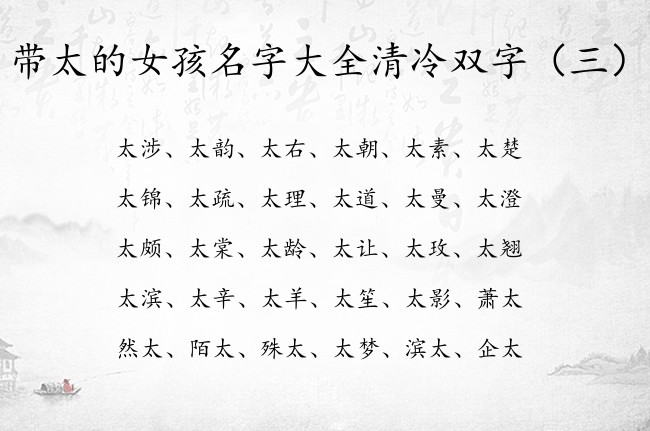 带太的女孩名字大全清冷双字（三）
太涉、太韵、太右、太朝、太素、太楚
太锦、太疏、太理、太道、太曼、太澄
太颇、太棠、太龄、太让、太玫、太翘
太滨、太辛、太羊、太笙、太影、萧太
然太、陌太、殊太、太梦、滨太、企太